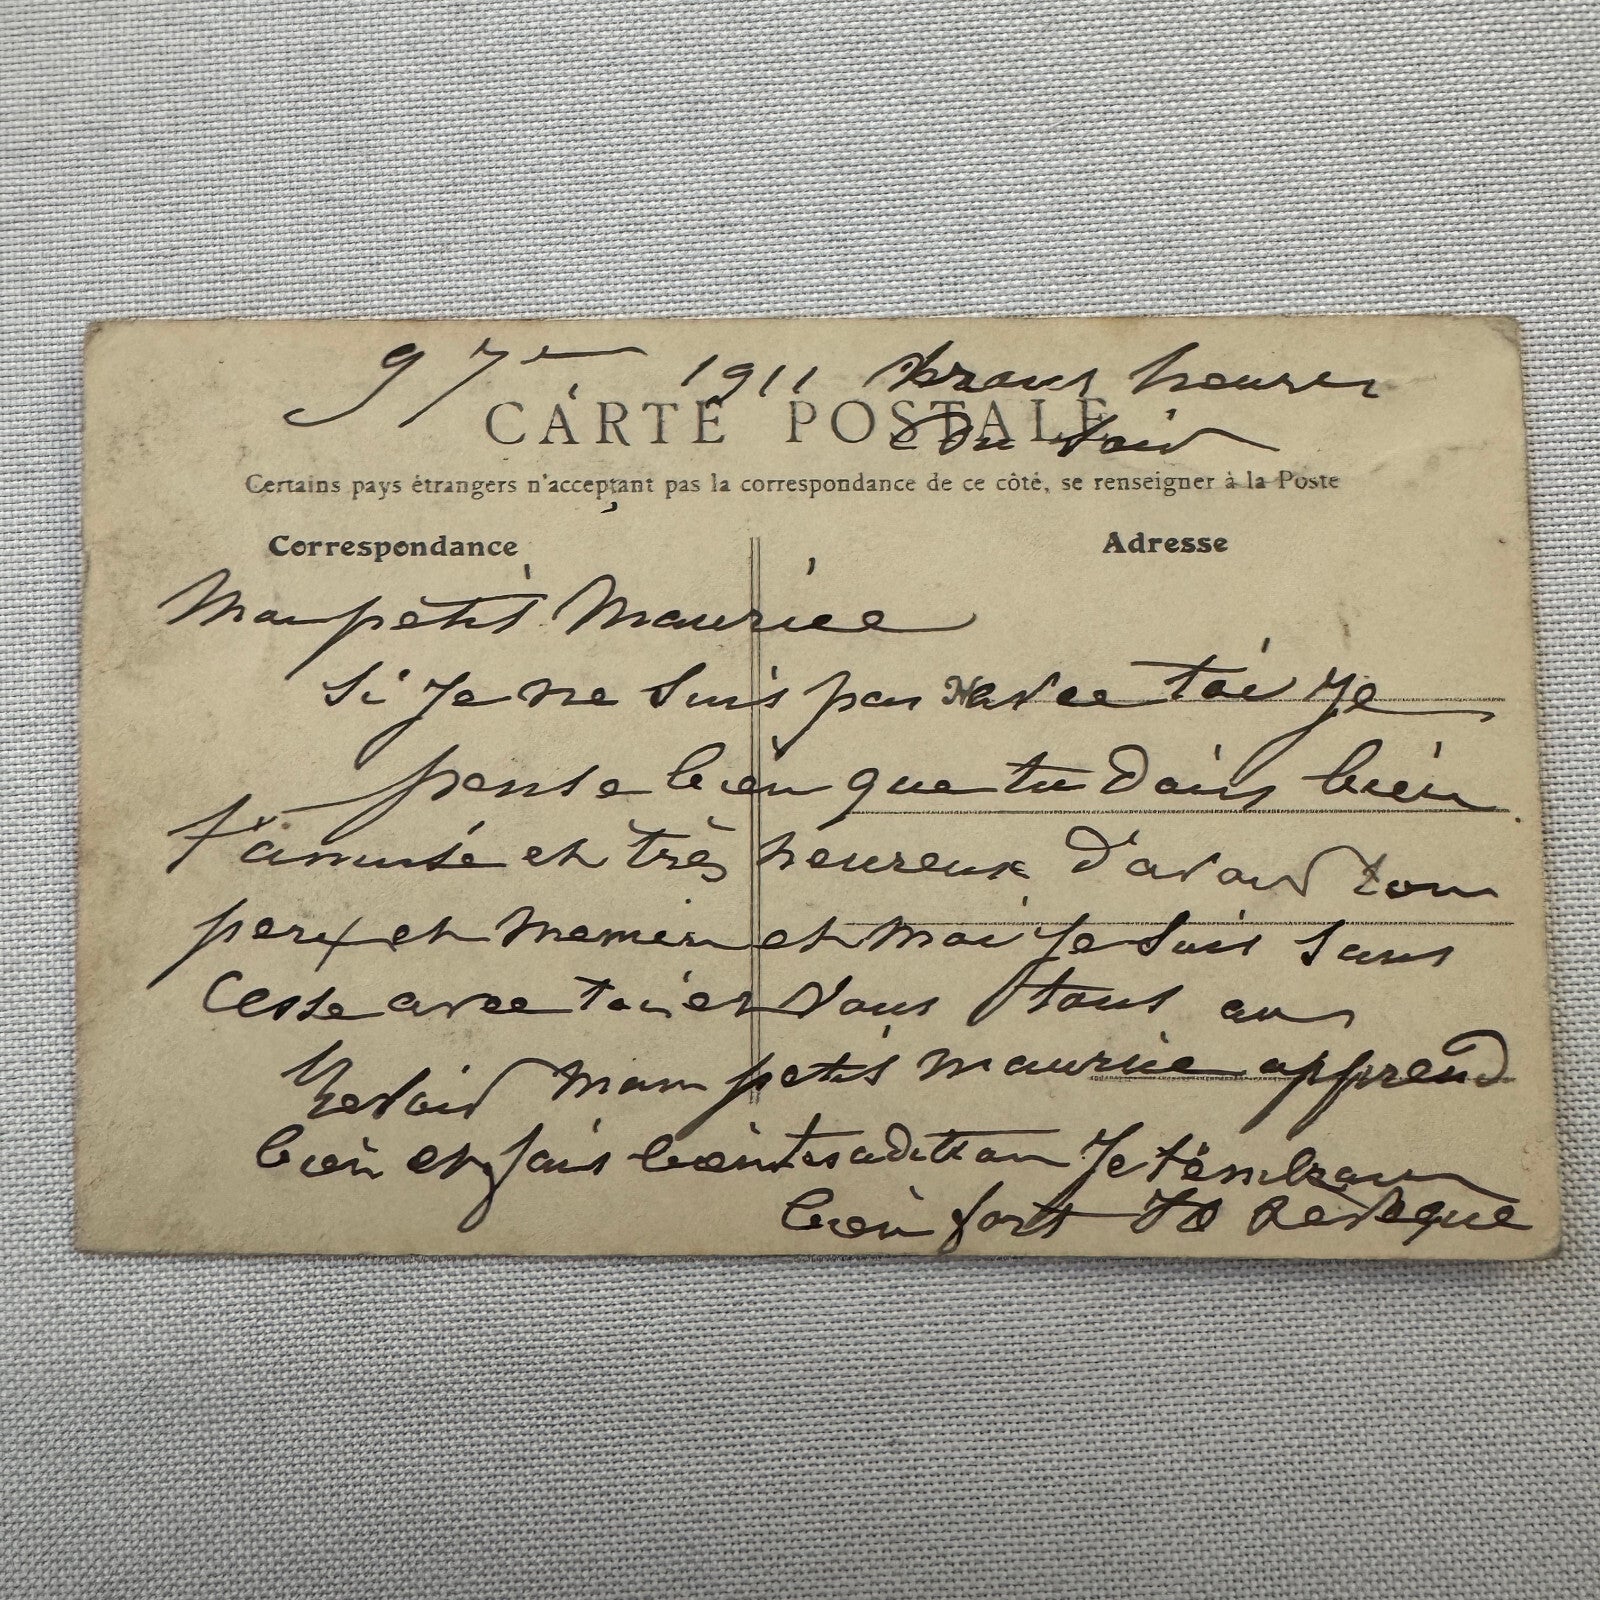 9 7re 1911 trois heures
du soir
CARTE POSTALE
Certains pays étrangers n'acceptant pas la correspondance de ce côté, se renseigner à la Poste
Correspondance
Adresse
Mon petit Maurice
Si Je ne suis pas avec toi Je
pense bien que tu dois bien
t'amusé et très heureux d'avoir ton
et et moi Je suis sans
Cesse avec toi et Vous tous au
Revoir mon petit maurice apprend
bien et fais bien tes adittion Je t'embrasse
bien fort